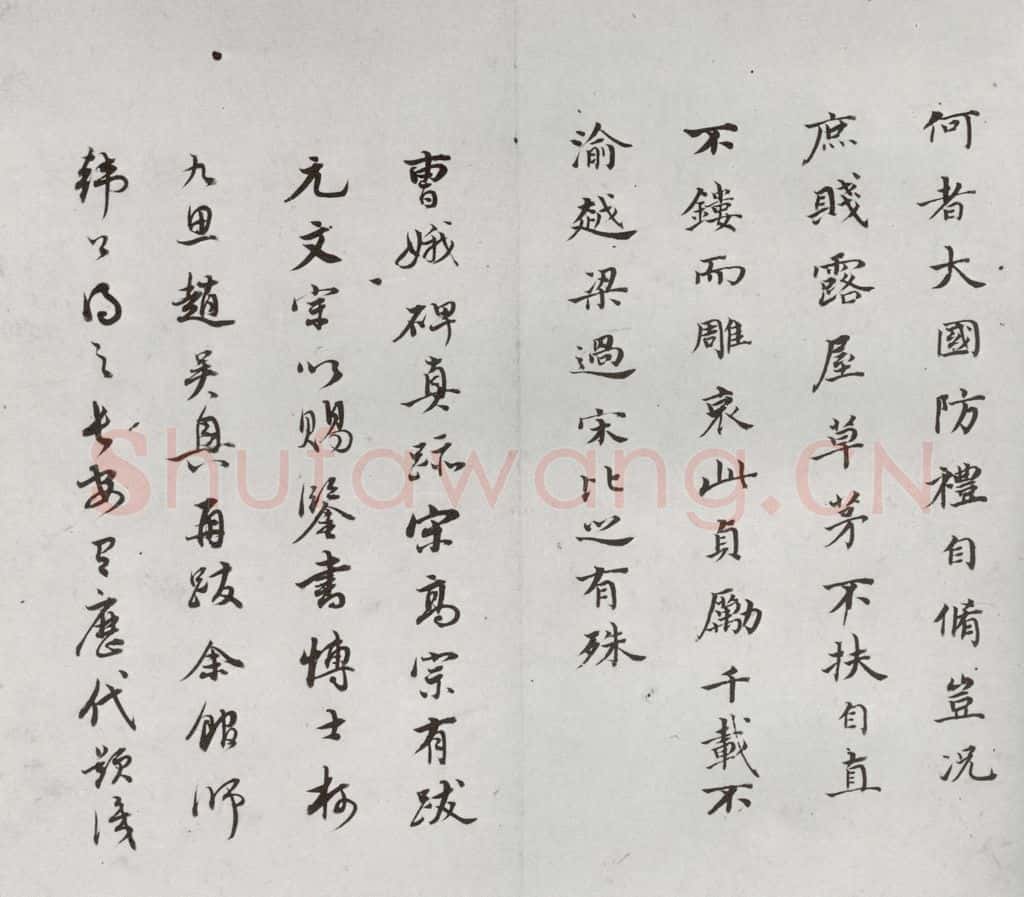 何者大國防禮自脩豈况
庶賤露屋草茅不扶自直
不鏤而雕哀此貞勵千載不
渝越梁過宋比之有殊
曹娥碑真跡宋高宗有跋
元文宗以賜鑒書博士柯
九思趙吳興再跋余館師
韓公得之長安有歷代題識
Shufawang.CN